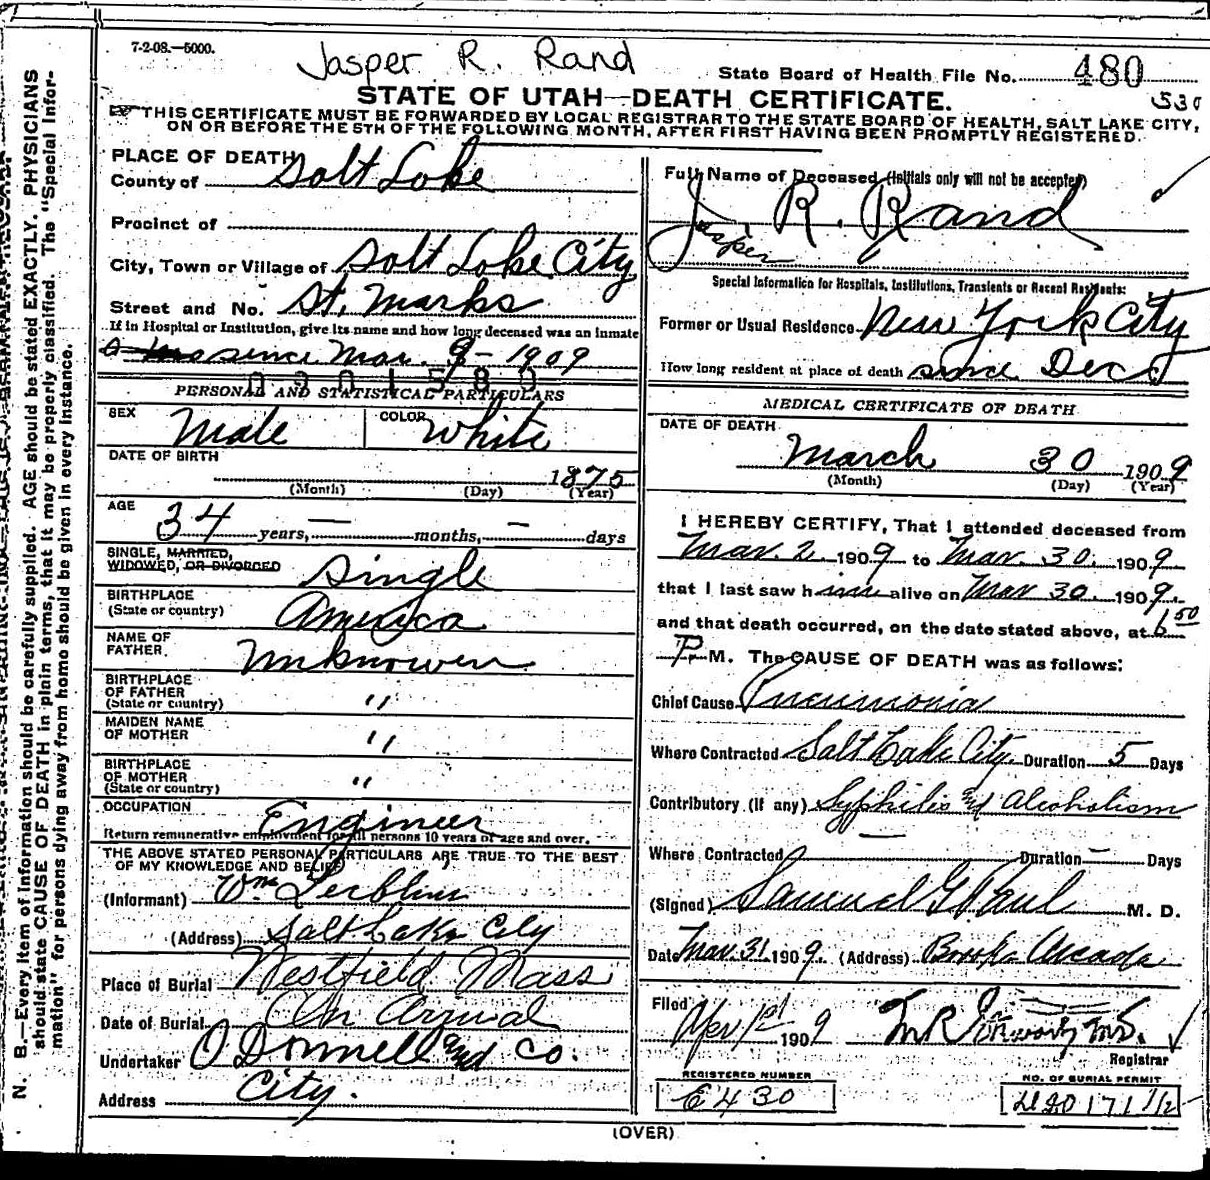 7-2-08.—5000.
Jasper R. Rand
State Board of Health File No. 480
530
STATE OF UTAH—DEATH CERTIFICATE.
THIS CERTIFICATE MUST BE FORWARDED BY LOCAL REGISTRAR TO THE STATE BOARD OF HEALTH, SALT LAKE CITY,
ON OR BEFORE THE 5TH OF THE FOLLOWING MONTH, AFTER FIRST HAVING BEEN PROMPTLY REGISTERED.
PLACE OF DEATH
County of Salt Lake
Precinct of
City, Town or Village of Salt Lake City
Street and No. St. Marks
If in Hospital or Institution, give its name and how long deceased was an inmate
since Mar. 9 - 1909
0301589
PERSONAL AND STATISTICAL PARTICULARS
SEX Male COLOR White
DATE OF BIRTH
1875
(Month) (Day) (Year)
AGE
34 years, — months, — days
SINGLE, MARRIED,
WIDOWED, OR DIVORCED Single
BIRTHPLACE
(State or country) America
NAME OF
FATHER Unknowen
BIRTHPLACE
OF FATHER
(State or country) "
MAIDEN NAME
OF MOTHER "
BIRTHPLACE
OF MOTHER
(State or country) "
OCCUPATION Engineer
Return remunerative employment for all persons 10 years of age and over.
THE ABOVE STATED PERSONAL PARTICULARS ARE TRUE TO THE BEST
OF MY KNOWLEDGE AND BELIEF
(Informant) Wm
(Address) Salt Lake City
Place of Burial Westfield Mass
Date of Burial On Arrival
Undertaker O Donnell and Co.
Address City.
Full Name of Deceased (Initials only will not be accepted)
Jasper R. Rand
Jasper
Special Information for Hospitals, Institutions, Transients or Recent Residents:
Former or Usual Residence New York City
How long resident at place of death since Dec
MEDICAL CERTIFICATE OF DEATH
DATE OF DEATH
March 30 1909
(Month) (Day) (Year)
I HEREBY CERTIFY, That I attended deceased from
Mar. 2 1909 to Mar. 30. 1909
that I last saw him alive on Mar 30. 1909.
and that death occurred, on the date stated above, at 6 50
P. M. The CAUSE OF DEATH was as follows:
Chief Cause Pneumonia
Where Contracted Salt Lake City. Duration 5 Days
Contributory (if any) Syphilis and Alcoholism
Where Contracted Duration — Days
(Signed) Samuel G Paul M. D.
Date Mar. 31. 1909. (Address) Brooks Arcade
Filed
Apr 1st 1909
Registrar
REGISTERED NUMBER
E430
NO. OF BURIAL PERMIT
171 1/2
(OVER)
N. B.—Every item of information should be carefully supplied. AGE should be stated EXACTLY. PHYSICIANS
should state CAUSE OF DEATH in plain terms, that it may be properly classified. The "Special Infor-
mation" for persons dying away from home should be given in every instance.